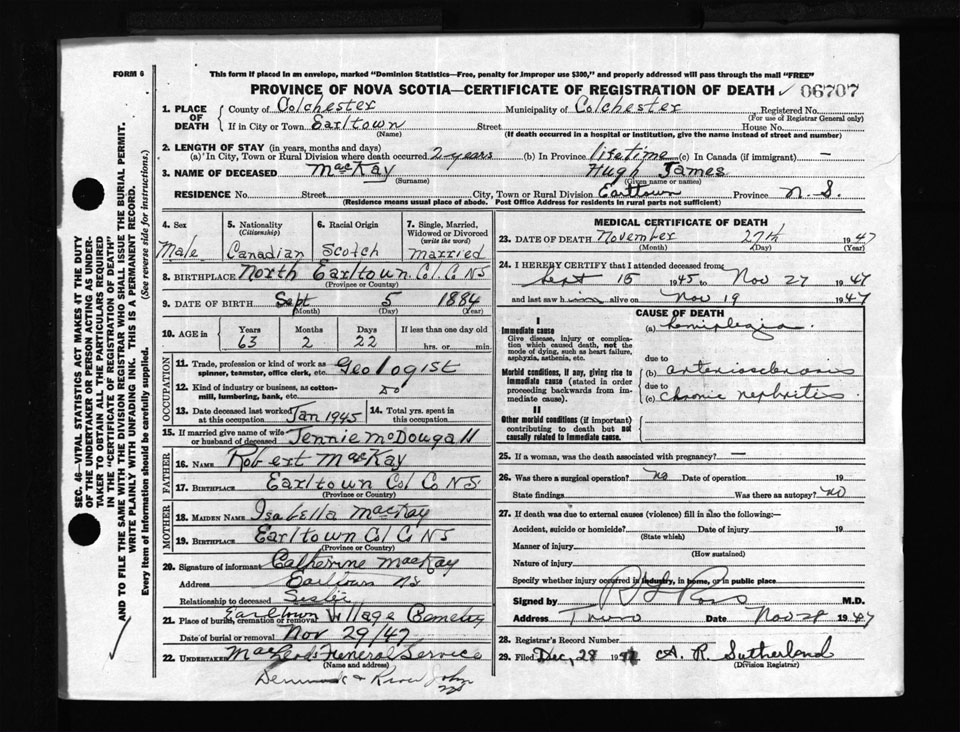 FORM 6
This form if placed in an envelope, marked "Dominion Statistics—Free, penalty for improper use $300," and properly addressed will pass through the mail "FREE"
PROVINCE OF NOVA SCOTIA—CERTIFICATE OF REGISTRATION OF DEATH 06707
1. PLACE OF DEATH { County of Colchester Municipality of Colchester Registered No.
(For use of Registrar General only)
If in City or Town Earltown Street House No.
(Name) (If death occurred in a hospital or institution, give the name instead of street and number)
2. LENGTH OF STAY (in years, months and days)
(a) In City, Town or Rural Division where death occurred 2 years (b) In Province lifetime (c) In Canada (if immigrant) —
3. NAME OF DECEASED MacKay Hugh James
(Surname) (Given name or names)
RESIDENCE No. Street City, Town or Rural Division Earltown Province N.S.
(Residence means usual place of abode. Post Office Address for residents in rural parts not sufficient)
4. Sex Male
5. Nationality (Citizenship) Canadian
6. Racial Origin Scotch
7. Single, Married, Widowed or Divorced (write the word) Married
8. BIRTHPLACE North Earltown Col. Co NS
(Province or Country)
9. DATE OF BIRTH Sept 5 1884
(Month) (Day) (Year)
10. AGE in { Years 63 Months 2 Days 22 If less than one day old hrs. or min.
OCCUPATION
11. Trade, profession or kind of work as spinner, teamster, office clerk, etc. Geologist
12. Kind of industry or business, as cotton-mill, lumbering, bank, etc. Do
13. Date deceased last worked at this occupation Jan 1945
14. Total yrs. spent in this occupation
15. If married give name of wife or husband of deceased Jennie McDougall
FATHER
16. NAME Robert MacKay
17. BIRTHPLACE Earltown Col Co NS
(Province or Country)
MOTHER
18. MAIDEN NAME Isabella MacKay
19. BIRTHPLACE Earltown Col Co NS
(Province or Country)
20. Signature of informant Catherine MacKay
Address Earltown NS
Relationship to deceased Sister
21. Place of burial, cremation or removal Earltown Village Cemetery
Date of burial or removal Nov 29/47
22. UNDERTAKER MacLeods Funeral Service
(Name and address)
River John NS
MEDICAL CERTIFICATE OF DEATH
23. DATE OF DEATH November 27th 1947
(Month) (Day) (Year)
24. I HEREBY CERTIFY that I attended deceased from
Sept 15 1945 to Nov 27 1947
and last saw him alive on Nov 19 1947
CAUSE OF DEATH
I
Immediate cause
Give disease, injury or complication which caused death, not the mode of dying, such as heart failure, asphyxia, asthenia, etc.
(a) hemiplegia
due to
Morbid conditions, if any, giving rise to immediate cause (stated in order proceeding backwards from immediate cause).
(b) arteriosclerosis
due to
(c) chronic nephritis
II
Other morbid conditions (if important) contributing to death but not causally related to immediate cause.
25. If a woman, was the death associated with pregnancy? —
26. Was there a surgical operation? No Date of operation 19
State findings Was there an autopsy? No
27. If death was due to external causes (violence) fill in also the following:—
Accident, suicide or homicide? Date of injury 19
(State which)
Manner of injury
(How sustained)
Nature of injury
Specify whether injury occurred in industry, in home, or in public place
Signed by Ross M.D.
Address Truro Date Nov 28 1947
28. Registrar's Record Number
29. Filed Dec. 29 1947 A. R. Sutherland
(Division Registrar)
SEC. 46—VITAL STATISTICS ACT MAKES IT THE DUTY
OF THE UNDERTAKER OR PERSON ACTING AS UNDER-
TAKER TO OBTAIN ALL THE PARTICULARS REQUIRED
IN THE "CERTIFICATE OF REGISTRATION OF DEATH"
AND TO FILE THE SAME WITH THE DIVISION REGISTRAR WHO SHALL ISSUE THE BURIAL PERMIT.
WRITE PLAINLY WITH UNFADING INK. THIS IS A PERMANENT RECORD.
Every item of information should be carefully supplied. (See reverse side for instructions.)